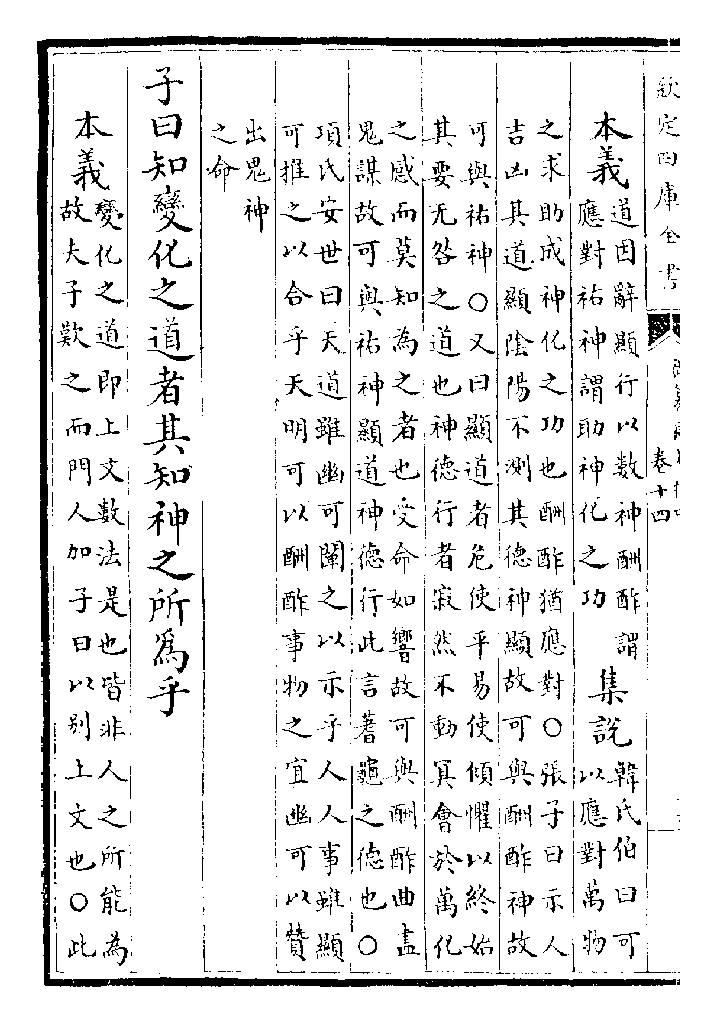 欽定四庫全書
卷十四
本義道因辭顯行以數神酬酢謂
應對祐神謂助神化之功
集說韓氏伯曰可
以應對萬物
之求助成神化之功也酬酢猶應對○張子曰示人
吉凶其道顯陰陽不測其德神顯故可與酬酢神故
可與祐神○又曰顯道者危使平易使傾懼以終始
其要无咎之道也神德行者寂然不動冥會於萬化
之感而莫知為之者也受命如響故可與酬酢曲盡
鬼謀故可與祐神顯道神德行此言蓍龜之德也○
項氏安世曰天道雖幽可闡之以示乎人人事雖顯
可推之以合乎天明可以酬酢事物之宜幽可以贊
出鬼神
之命
子曰知變化之道者其知神之所爲乎
本義變化之道即上文數法是也皆非人之所能為
故夫子歎之而門人加子曰以別上文也○此